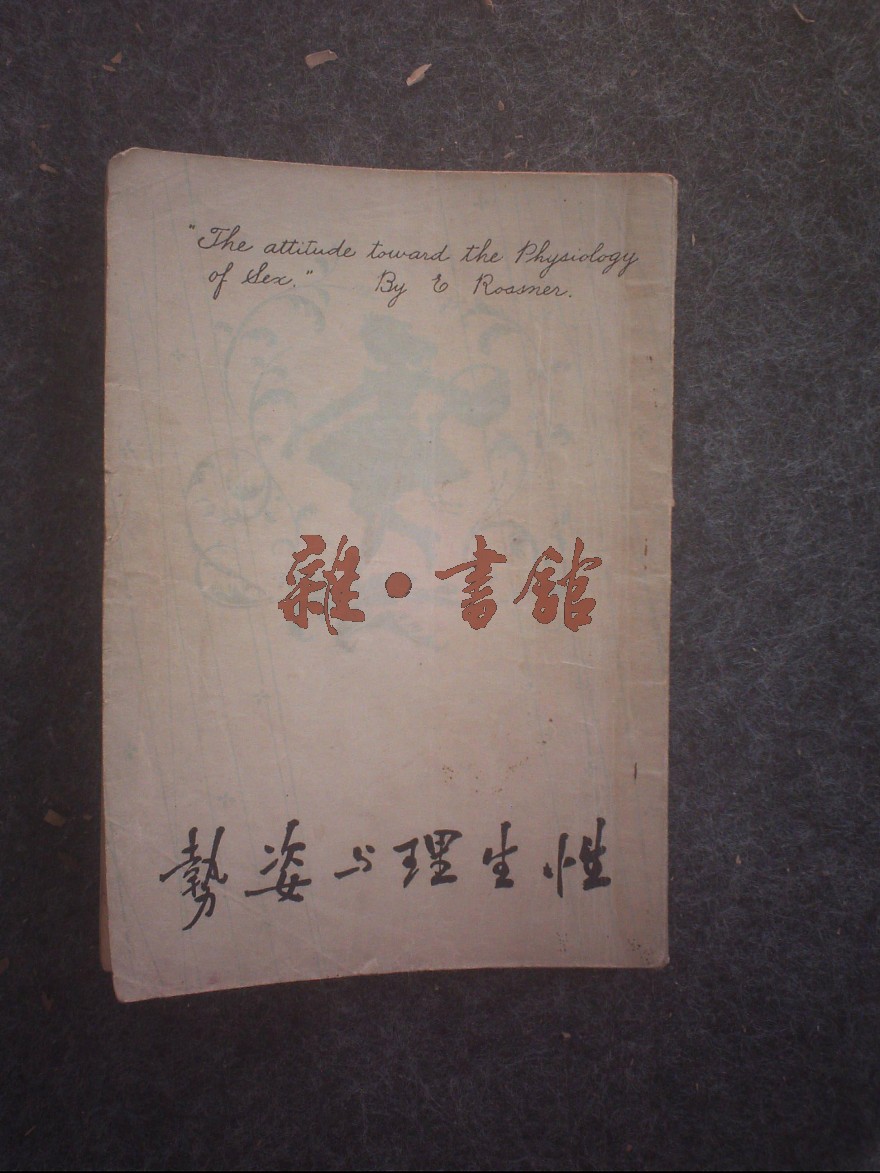 "The attitude toward the Physiology
of Sex." By E Rossner.
雜•書館
性生理与姿勢